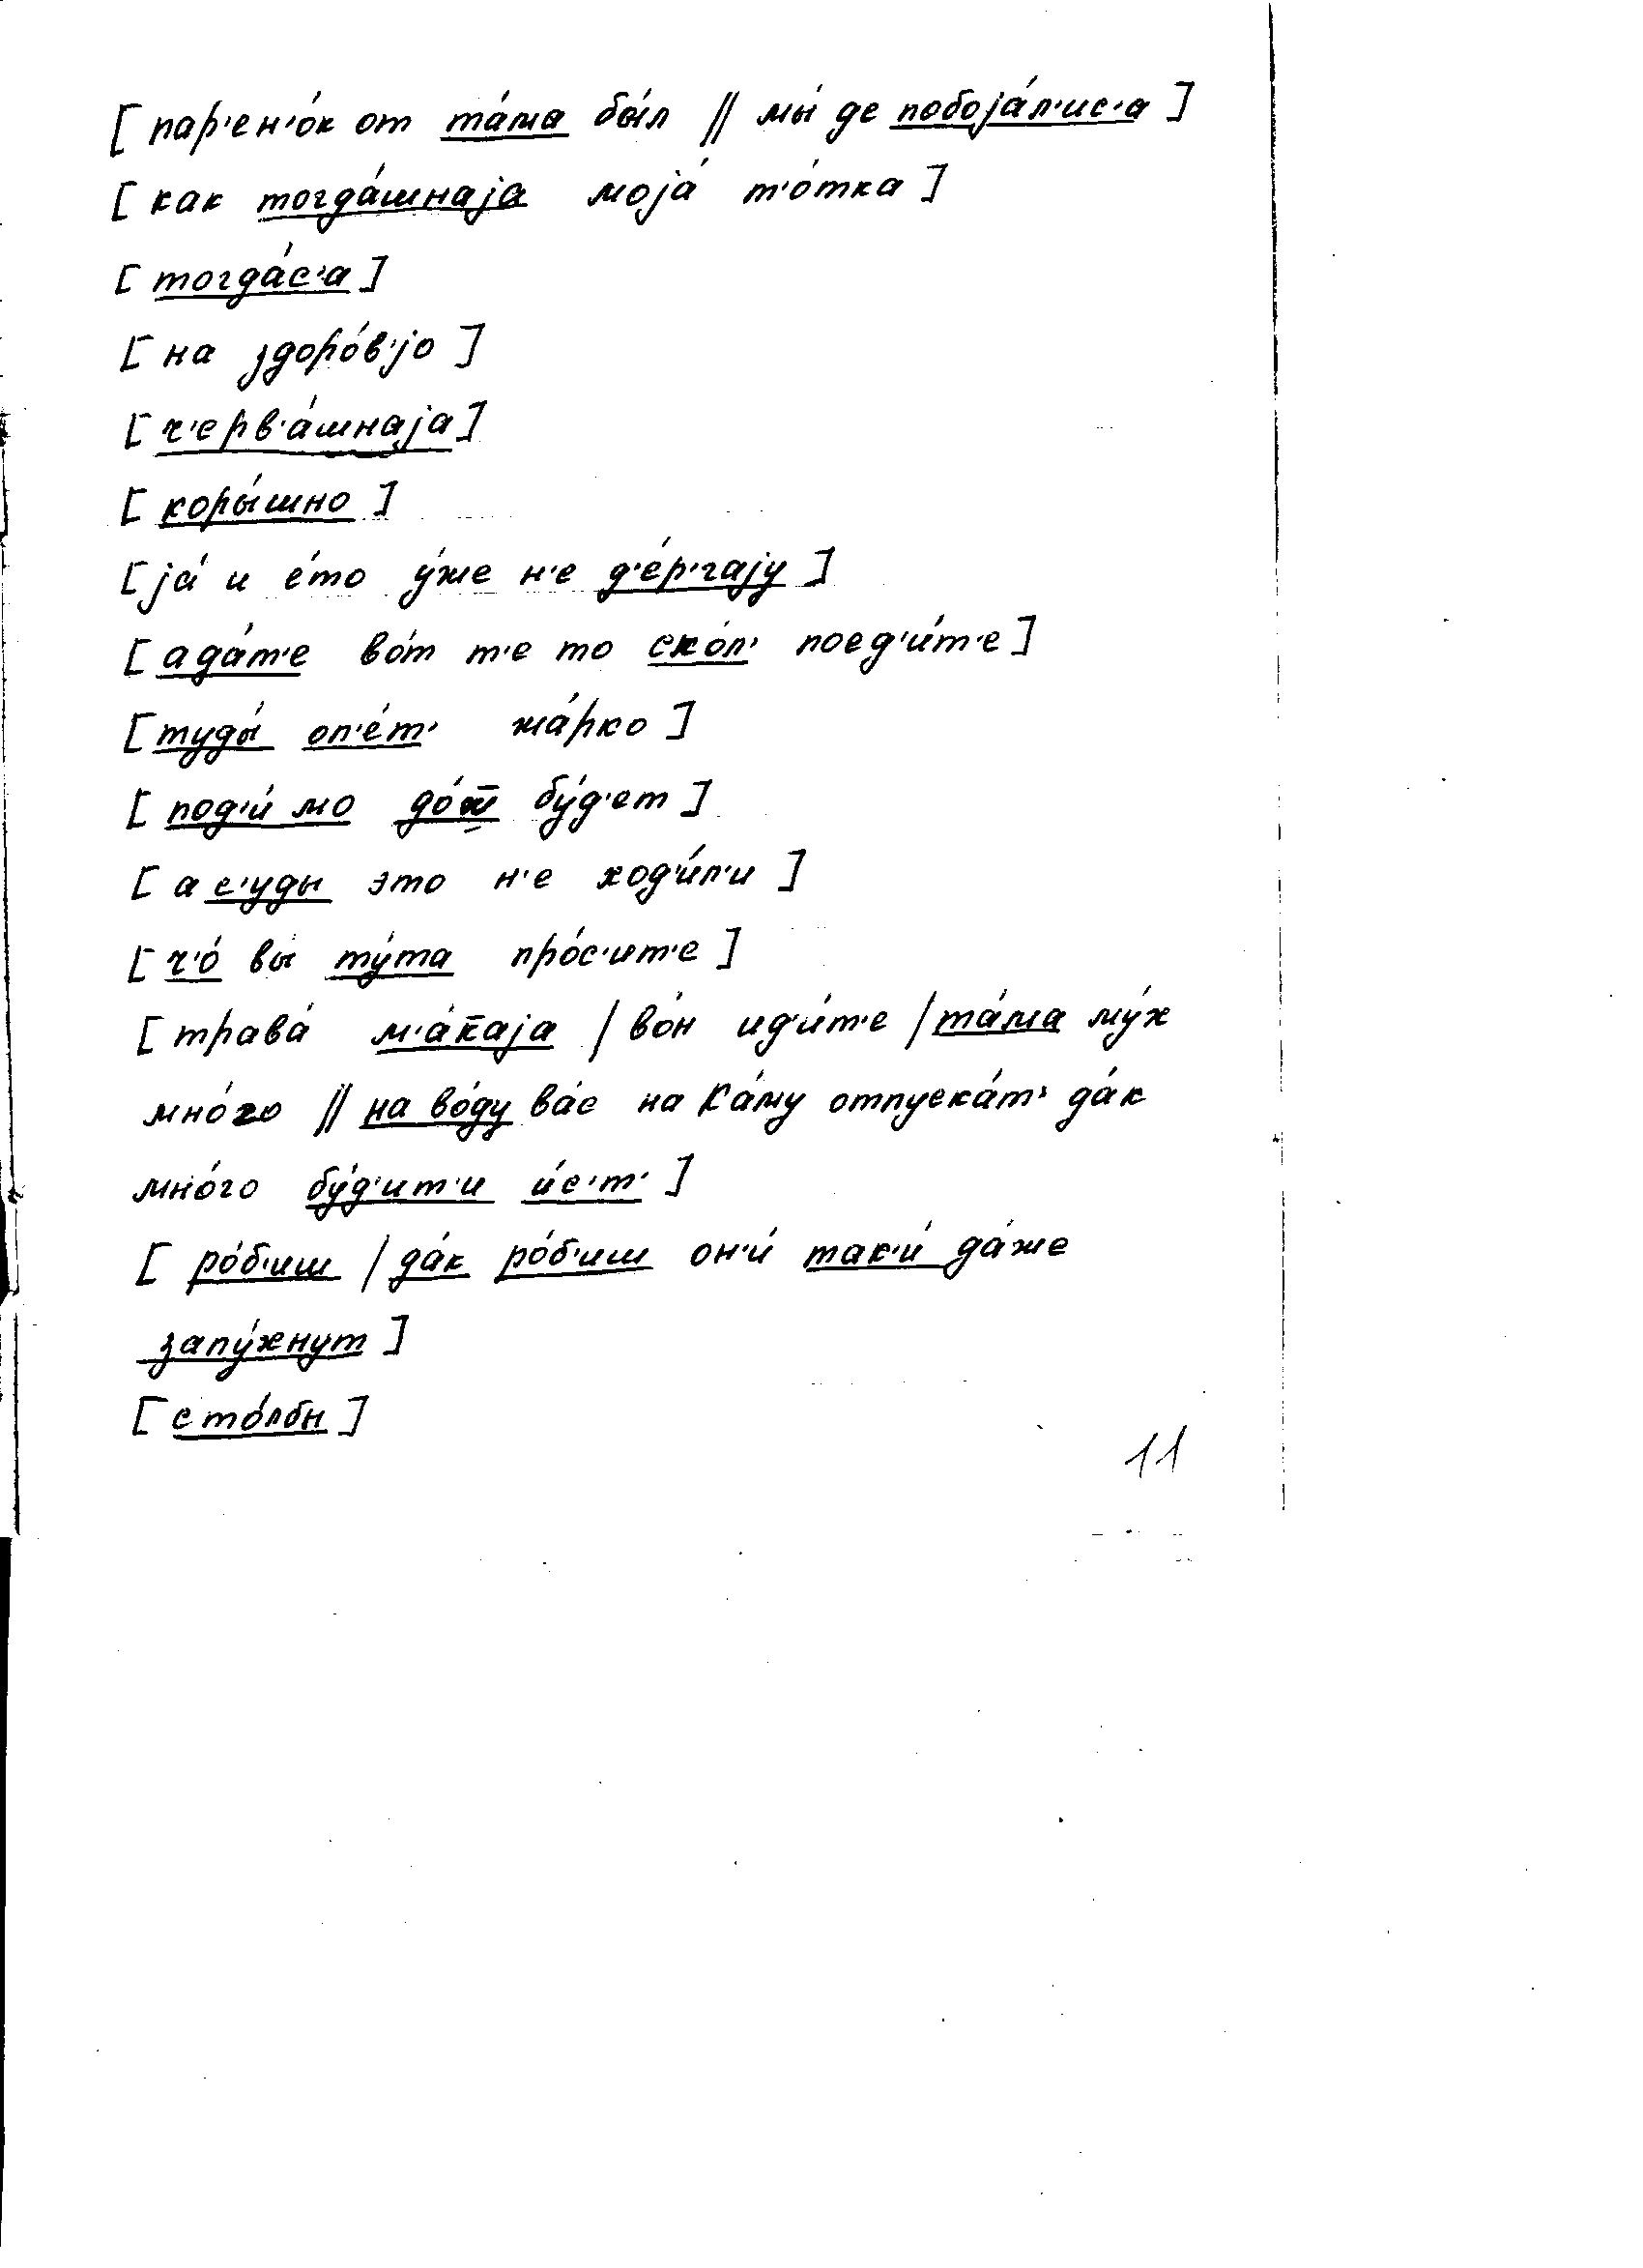 [ пар'ен'о́к от та́ма бы́л // мы́ де побоjа́л'ис'а ]
[ как тогда́шнаjа моjа́ т'о́тка ]
[ тогда́с'а ]
[ на здоро́в'jо ]
[ ч'ерв'а́шнаjа ]
[ коры́шно ]
[ jа́ и е́то у́же н'е д'е́р'гаjу ]
[ ада́т'е во́т т'е то ско́л' поед'и́т'е ]
[ туды́ оп'е́т' жа́рко ]
[ под'и́ мо до́ш̄ бу́д'ет ]
[ а с'уды это н'е ход'и́л'и ]
[ ч'о́ вы ту́та про́с'ит'е ]
[ трава́ м'а́к̄аjа / во́н ид'и́т'е / та́ма му́х
мно́го // на во́ду ва́с на Ка́му отпуска́т' да́к
мно́го бу́д'ит'и и́с'т' ]
[ ро́б'иш / да́к ро́б'иш он'и́ так'и́ да́же
запу́хнут ]
[ сто́лбы ]
11